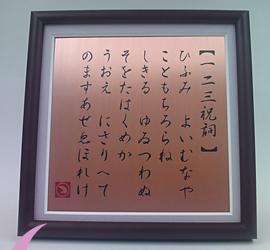 【一二三祝詞】
ひふみ　よいむなや
こともちろらね
しきる　ゆゐつわぬ
そをたはくめか
うおえ　にさりへて
のますあせゑほれけ